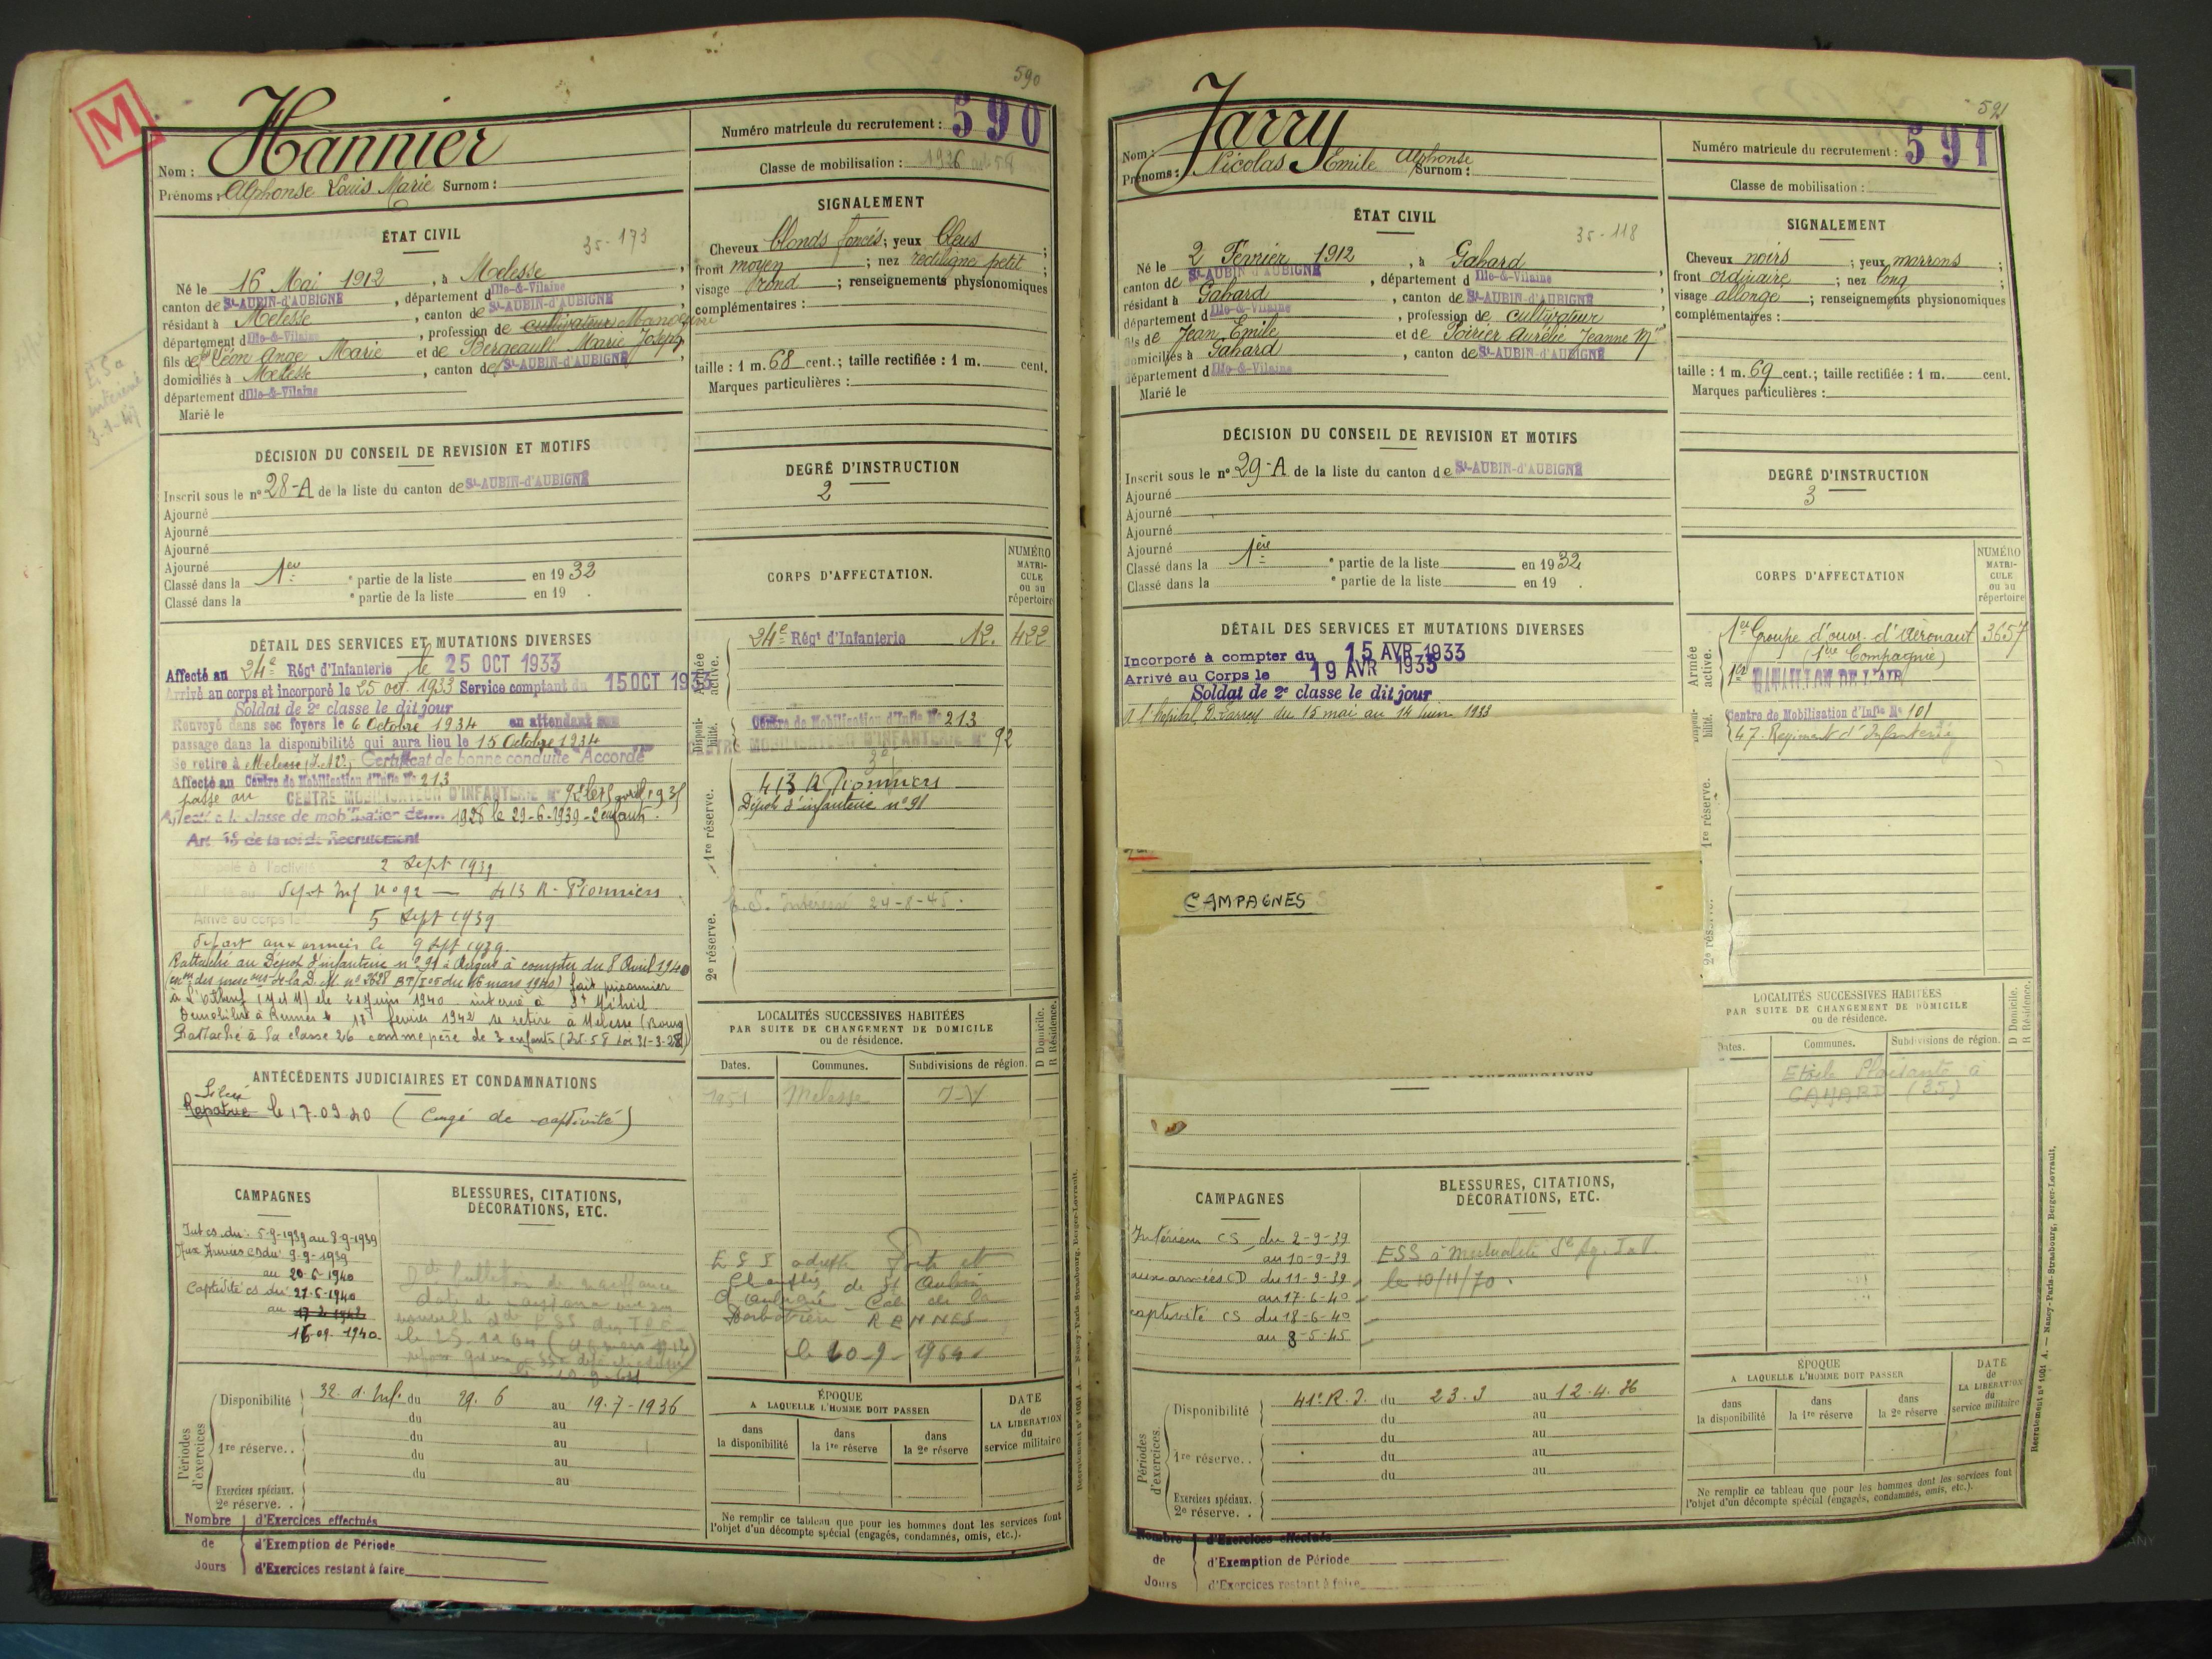 590
M
Nom : Hannier
Prénoms : Alphonse Louis Marie Surnom :
Numéro matricule du recrutement : 590
Classe de mobilisation : 1926
ÉTAT CIVIL
35-173
Né le 16 Mai 1912, à Melesse,
canton de St-AUBIN-d'AUBIGNÉ, département d Ille-&-Vilaine,
résidant à Melesse, canton de St-AUBIN-d'AUBIGNÉ,
département d Ille-&-Vilaine, profession de cultivateur Manoeuvre
fils de Léon Ange Marie et de Bergeault Marie Joseph,
domiciliés à Melesse, canton de St-AUBIN-d'AUBIGNÉ,
département d Ille-&-Vilaine
Marié le
SIGNALEMENT
Cheveux blonds foncés; yeux bleus;
front moyen; nez rectiligne petit;
visage rond; renseignements physionomiques
complémentaires :
taille : 1 m. 68 cent.; taille rectifiée : 1 m. cent.
Marques particulières :
E.S a
intéressé
3-1-47
DÉCISION DU CONSEIL DE REVISION ET MOTIFS
Inscrit sous le n° 28-A de la liste du canton de St-AUBIN-d'AUBIGNÉ
Ajourné
Ajourné
Ajourné
Ajourné
Classé dans la 1ère partie de la liste en 1932
Classé dans la e partie de la liste en 19 .
DEGRÉ D'INSTRUCTION
2
DÉTAIL DES SERVICES ET MUTATIONS DIVERSES
Affecté au 24e Régt d'Infanterie le 25 OCT 1933
Arrivé au corps et incorporé le 25 oct. 1933 Service comptant du 15 OCT 1933
Soldat de 2e classe le dit jour
Renvoyé dans ses foyers le 6 Octobre 1934 en attendant son
passage dans la disponibilité qui aura lieu le 15 Octobre 1934
Se retire à Melesse (I.&V.) Certificat de bonne conduite "Accordé"
Affecté au Centre de Mobilisation d'Infie N° 213
passé au CENTRE MOBILISATEUR D'INFANTERIE N° 92 le 15 avril 1935
Affecté à la classe de mobilisation de 1928 le 29-6-1939 - 2 enfants.
Art 58 de la loi de Recrutement
Rappelé à l'activité 2 Sept 1939
Affecté au Dépôt Inf n° 92 — 413 R. Pionniers
Arrivé au corps le 5 Sept 1939
Départ aux armées le 9 Sept 1939.
Rattaché au Dépôt d'infanterie n° 91 à Angers à compter du 8 Avril 1940
fait prisonnier
(M et M) le 21 Juin 1940 interné à St Mihiel
Démobilisé à Rennes le février 1942 se retire à Melesse (Bourg)
Rattaché à la classe 26 comme père de 3 enfants (Art. 58 Loi 31-3-28)
CORPS D'AFFECTATION.
NUMÉRO MATRICULE ou au répertoire
Armée active.
24e Régt d'Infanterie 12. 422
Disponibilité.
Centre de Mobilisation d'Infie N° 213
CENTRE MOBILISATEUR D'INFANTERIE N° 92
1re réserve.
413 R Pionniers
Dépôt d'infanterie n° 91
2e réserve.
E.S. Intéressé 24-8-45.
ANTÉCÉDENTS JUDICIAIRES ET CONDAMNATIONS
Libéré
Rapatrié le 17.09.40 (Congé de captivité)
LOCALITÉS SUCCESSIVES HABITÉES
PAR SUITE DE CHANGEMENT DE DOMICILE
ou de résidence.
D Domicile. R Résidence.
Dates. Communes. Subdivisions de région.
1951 Melesse I-V
ESS
de St Aubin
d'Aubigné
RENNES
le 10-9-1964
CAMPAGNES
Int cs du : 5-9-1939 au 8-9-1939
Aux Armées CS du 9-9-1939
au 20-6-1940
Captivité cs du 21-6-1940
au 17-2-1942
16-09-1940
BLESSURES, CITATIONS,
DÉCORATIONS, ETC.
Périodes d'exercices
Disponibilité 32. d. Inf. du 29. 6 au 19-7-1936
du au
1re réserve. . du au
du au
du au
Exercices spéciaux.
2e réserve. .
Nombre de Jours
d'Exercices effectués
d'Exemption de Période
d'Exercices restant à faire
ÉPOQUE
A LAQUELLE L'HOMME DOIT PASSER
dans la disponibilité
dans la 1re réserve
dans la 2e réserve
DATE de LA LIBÉRATION du service militaire
Ne remplir ce tableau que pour les hommes dont les services font
l'objet d'un décompte spécial (engagés, condamnés, omis, etc.).
Recrutement n° 1001 A. — Nancy-Paris-Strasbourg, Berger-Levrault.
591
Nom : Jarry
Prénoms : Nicolas Emile Alphonse Surnom :
Numéro matricule du recrutement : 591
Classe de mobilisation :
ÉTAT CIVIL
35-118
Né le 2 Février 1912, à Gahard,
canton de St-AUBIN-d'AUBIGNÉ, département d Ille-&-Vilaine,
résidant à Gahard, canton de St-AUBIN-d'AUBIGNÉ,
département d Ille-&-Vilaine, profession de cultivateur
fils de Jean Emile et de Poirier Aurélie Jeanne Mie
domiciliés à Gahard, canton de St-AUBIN-d'AUBIGNÉ
département d Ille-&-Vilaine
Marié le
SIGNALEMENT
Cheveux noirs; yeux marrons;
front ordinaire; nez long
visage allongé; renseignements physionomiques
complémentaires :
taille : 1 m. 69 cent.; taille rectifiée : 1 m. cent.
Marques particulières :
DÉCISION DU CONSEIL DE REVISION ET MOTIFS
Inscrit sous le n° 29-A de la liste du canton de St-AUBIN-d'AUBIGNÉ
Ajourné
Ajourné
Ajourné
Ajourné
Classé dans la 1ère partie de la liste en 1932
Classé dans la e partie de la liste en 19 .
DEGRÉ D'INSTRUCTION
3
DÉTAIL DES SERVICES ET MUTATIONS DIVERSES
Incorporé à compter du 15 AVR 1933
Arrivé au Corps le 19 AVR 1933
Soldat de 2e classe le dit jour
A l'Hôpital D. Larrey du 15 mai au 14 Juin 1933
CAMPAGNES
CORPS D'AFFECTATION
NUMÉRO MATRICULE ou au répertoire
Armée active.
1er Groupe d'ouvr. d'Aéronaut 3657
(1ère Compagnie)
1er BATAILLON DE L'AIR
Centre de Mobilisation d'Infie N° 101
47. Régiment d'Infanterie
1re réserve.
LOCALITÉS SUCCESSIVES HABITÉES
PAR SUITE DE CHANGEMENT DE DOMICILE
ou de résidence.
D Domicile. R Résidence.
Dates. Communes. Subdivisions de région.
à
GAHARD (35)
CAMPAGNES
Intérieur CS du 2-9-39
au 10-9-39
aux armées CD du 11-9-39
au 17-6-40
captivité CS du 18-6-40
au 8-5-45
BLESSURES, CITATIONS,
DÉCORATIONS, ETC.
ESS à Mutualité
le 10/11/70.
Périodes d'exercices.
Disponibilité 41e R.I. du 23.3 au 12.4.36
du au
du au
1re réserve. . du au
du au
Exercices spéciaux.
2e réserve. .
Nombre de Jours
d'Exercices effectués
d'Exemption de Période
d'Exercices restant à faire
ÉPOQUE
A LAQUELLE L'HOMME DOIT PASSER
dans la disponibilité
dans la 1re réserve
dans la 2e réserve
DATE de LA LIBÉRATION du service militaire
Ne remplir ce tableau que pour les hommes dont les services font
l'objet d'un décompte spécial (engagés, condamnés, omis, etc.).
Recrutement n° 1001 A. — Nancy-Paris-Strasbourg, Berger-Levrault.